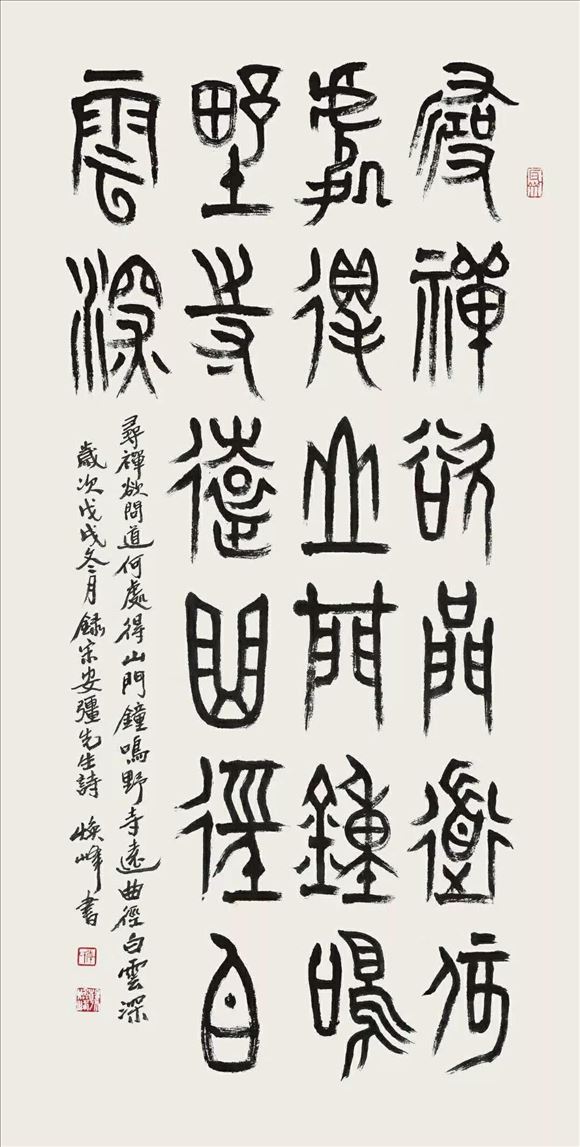 尋禪欲問道何
處得山門鐘鳴
野寺遠曲徑白
雲深
尋禪欲問道何處得山門鐘鳴野寺遠曲徑白雲深
歲次戊戌冬月錄宋安彊先生詩 煥峰書